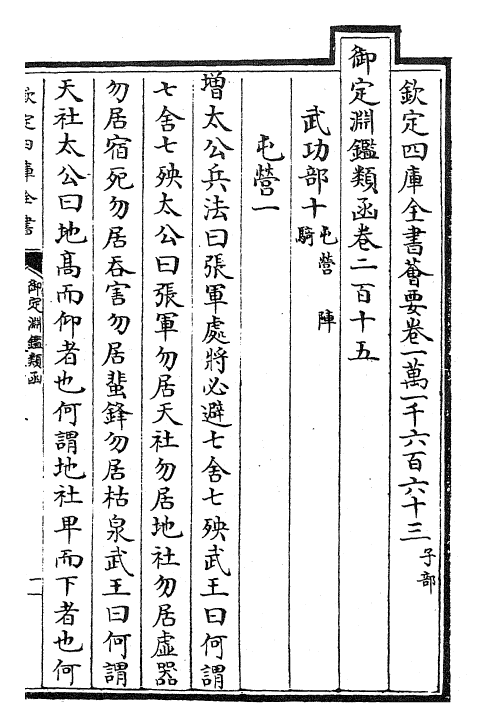 欽定四庫全書薈要卷一萬一千六百六十三 子部
御定淵鑑類函卷二百十五
武功部十 屯營 陣 騎
屯營一
增太公兵法曰張軍處將必避七舍七殃武王曰何謂
七舍七殃太公曰張軍勿居天社勿居地社勿居虛器
勿居宿死勿居吞害勿居蜚鋒勿居枯泉武王曰何謂
天社太公曰地高而仰者也何謂地社卑而下者也何
欽定四庫全書
御定淵鑑類函
一